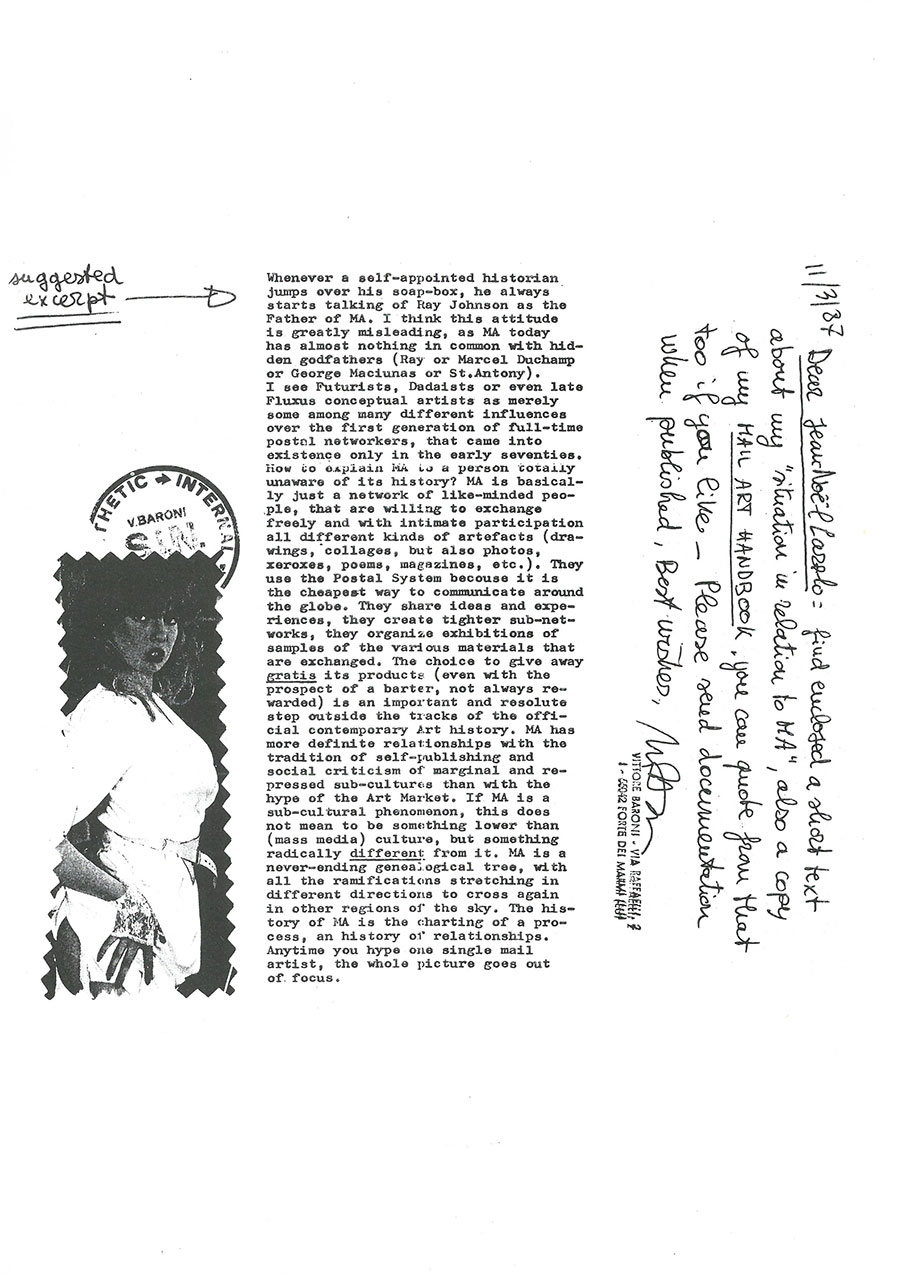 suggested
excerpt
Whenever a self-appointed historian
jumps over his soap-box, he always
starts talking of Ray Johnson as the
Father of MA. I think this attitude
is greatly misleading, as MA today
has almost nothing in common with hid-
den godfathers (Ray or Marcel Duchamp
or George Maciunas or St.Antony).
I see Futurists, Dadaists or even late
Fluxus conceptual artists as merely
some among many different influences
over the first generation of full-time
postal networkers, that came into
existence only in the early seventies.
How to explain MA to a person totally
unaware of its history? MA is basical-
ly just a network of like-minded peo-
ple, that are willing to exchange
freely and with intimate participation
all different kinds of artefacts (dra-
wings, collages, but also photos,
xeroxes, poems, magazines, etc.). They
use the Postal System becouse it is
the cheapest way to communicate around
the globe. They share ideas and expe-
riences, they create tighter sub-net-
works, they organize exhibitions of
samples of the various materials that
are exchanged. The choice to give away
gratis its products (even with the
prospect of a barter, not always re-
warded) is an important and resolute
step outside the tracks of the offi-
cial contemporary Art history. MA has
more definite relationships with the
tradition of self-publishing and
social criticism of marginal and re-
pressed sub-cultures than with the
hype of the Art Market. If MA is a
sub-cultural phenomenon, this does
not mean to be something lower than
(mass media) culture, but something
radically different from it. MA is a
never-ending genealogical tree, with
all the ramifications stretching in
different directions to cross again
in other regions of the sky. The his-
tory of MA is the charting of a pro-
cess, an history of relationships.
Anytime you hype one single mail
artist, the whole picture goes out
of focus.
THETIC → INTERNAL
V.BARONI
S.I.N.
11/3/87 Dear Jean Noël Laszlo: find enclosed a short text
about my "situation in relation to MA", also a copy
of my MAIL ART HANDBOOK, you can quote from that
too if you like - Please send documentation
when published, Best wishes,
VITTORE BARONI - VIA RAFFAELLI, 2
I - 55042 FORTE DEI MARMI